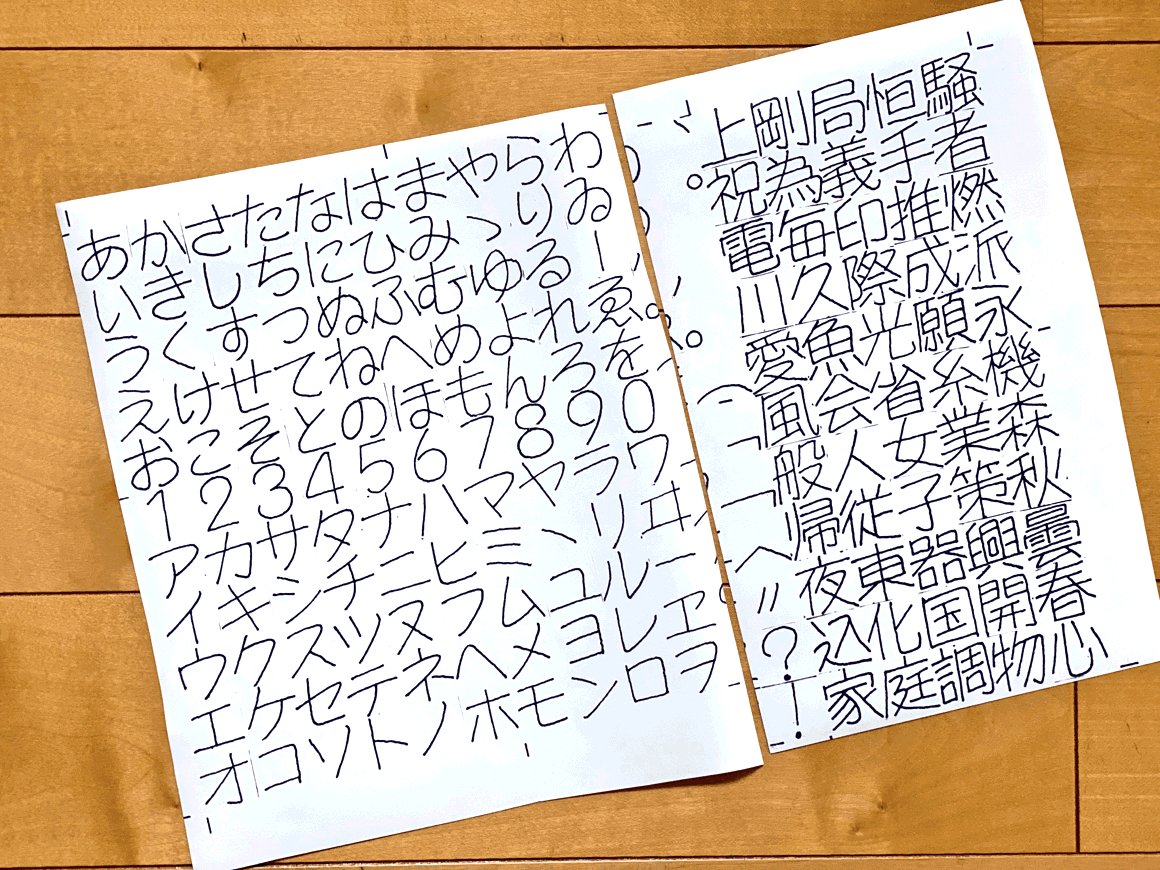 あかさたなはまやらわ
いきしちにひみゝりゐ
うくすつぬふむゆるー
えけせてねへめよれゑ
おこそとのほもんろを
1234567890
アカサタナハマヤラワ
イキシチニヒミヽリヰ
ウクスツヌフムユルー
エケセテネヘメヨレヱ
オコソトノホモンロヲ
゛上剛局恒騒
゜祝為義手者
電毎印推燃
川久際成派
。愛魚光願永
風会省糸機
般人女業森
帰従子策秋
〃夜東器興曇
？込化国開春
！家庭調物心